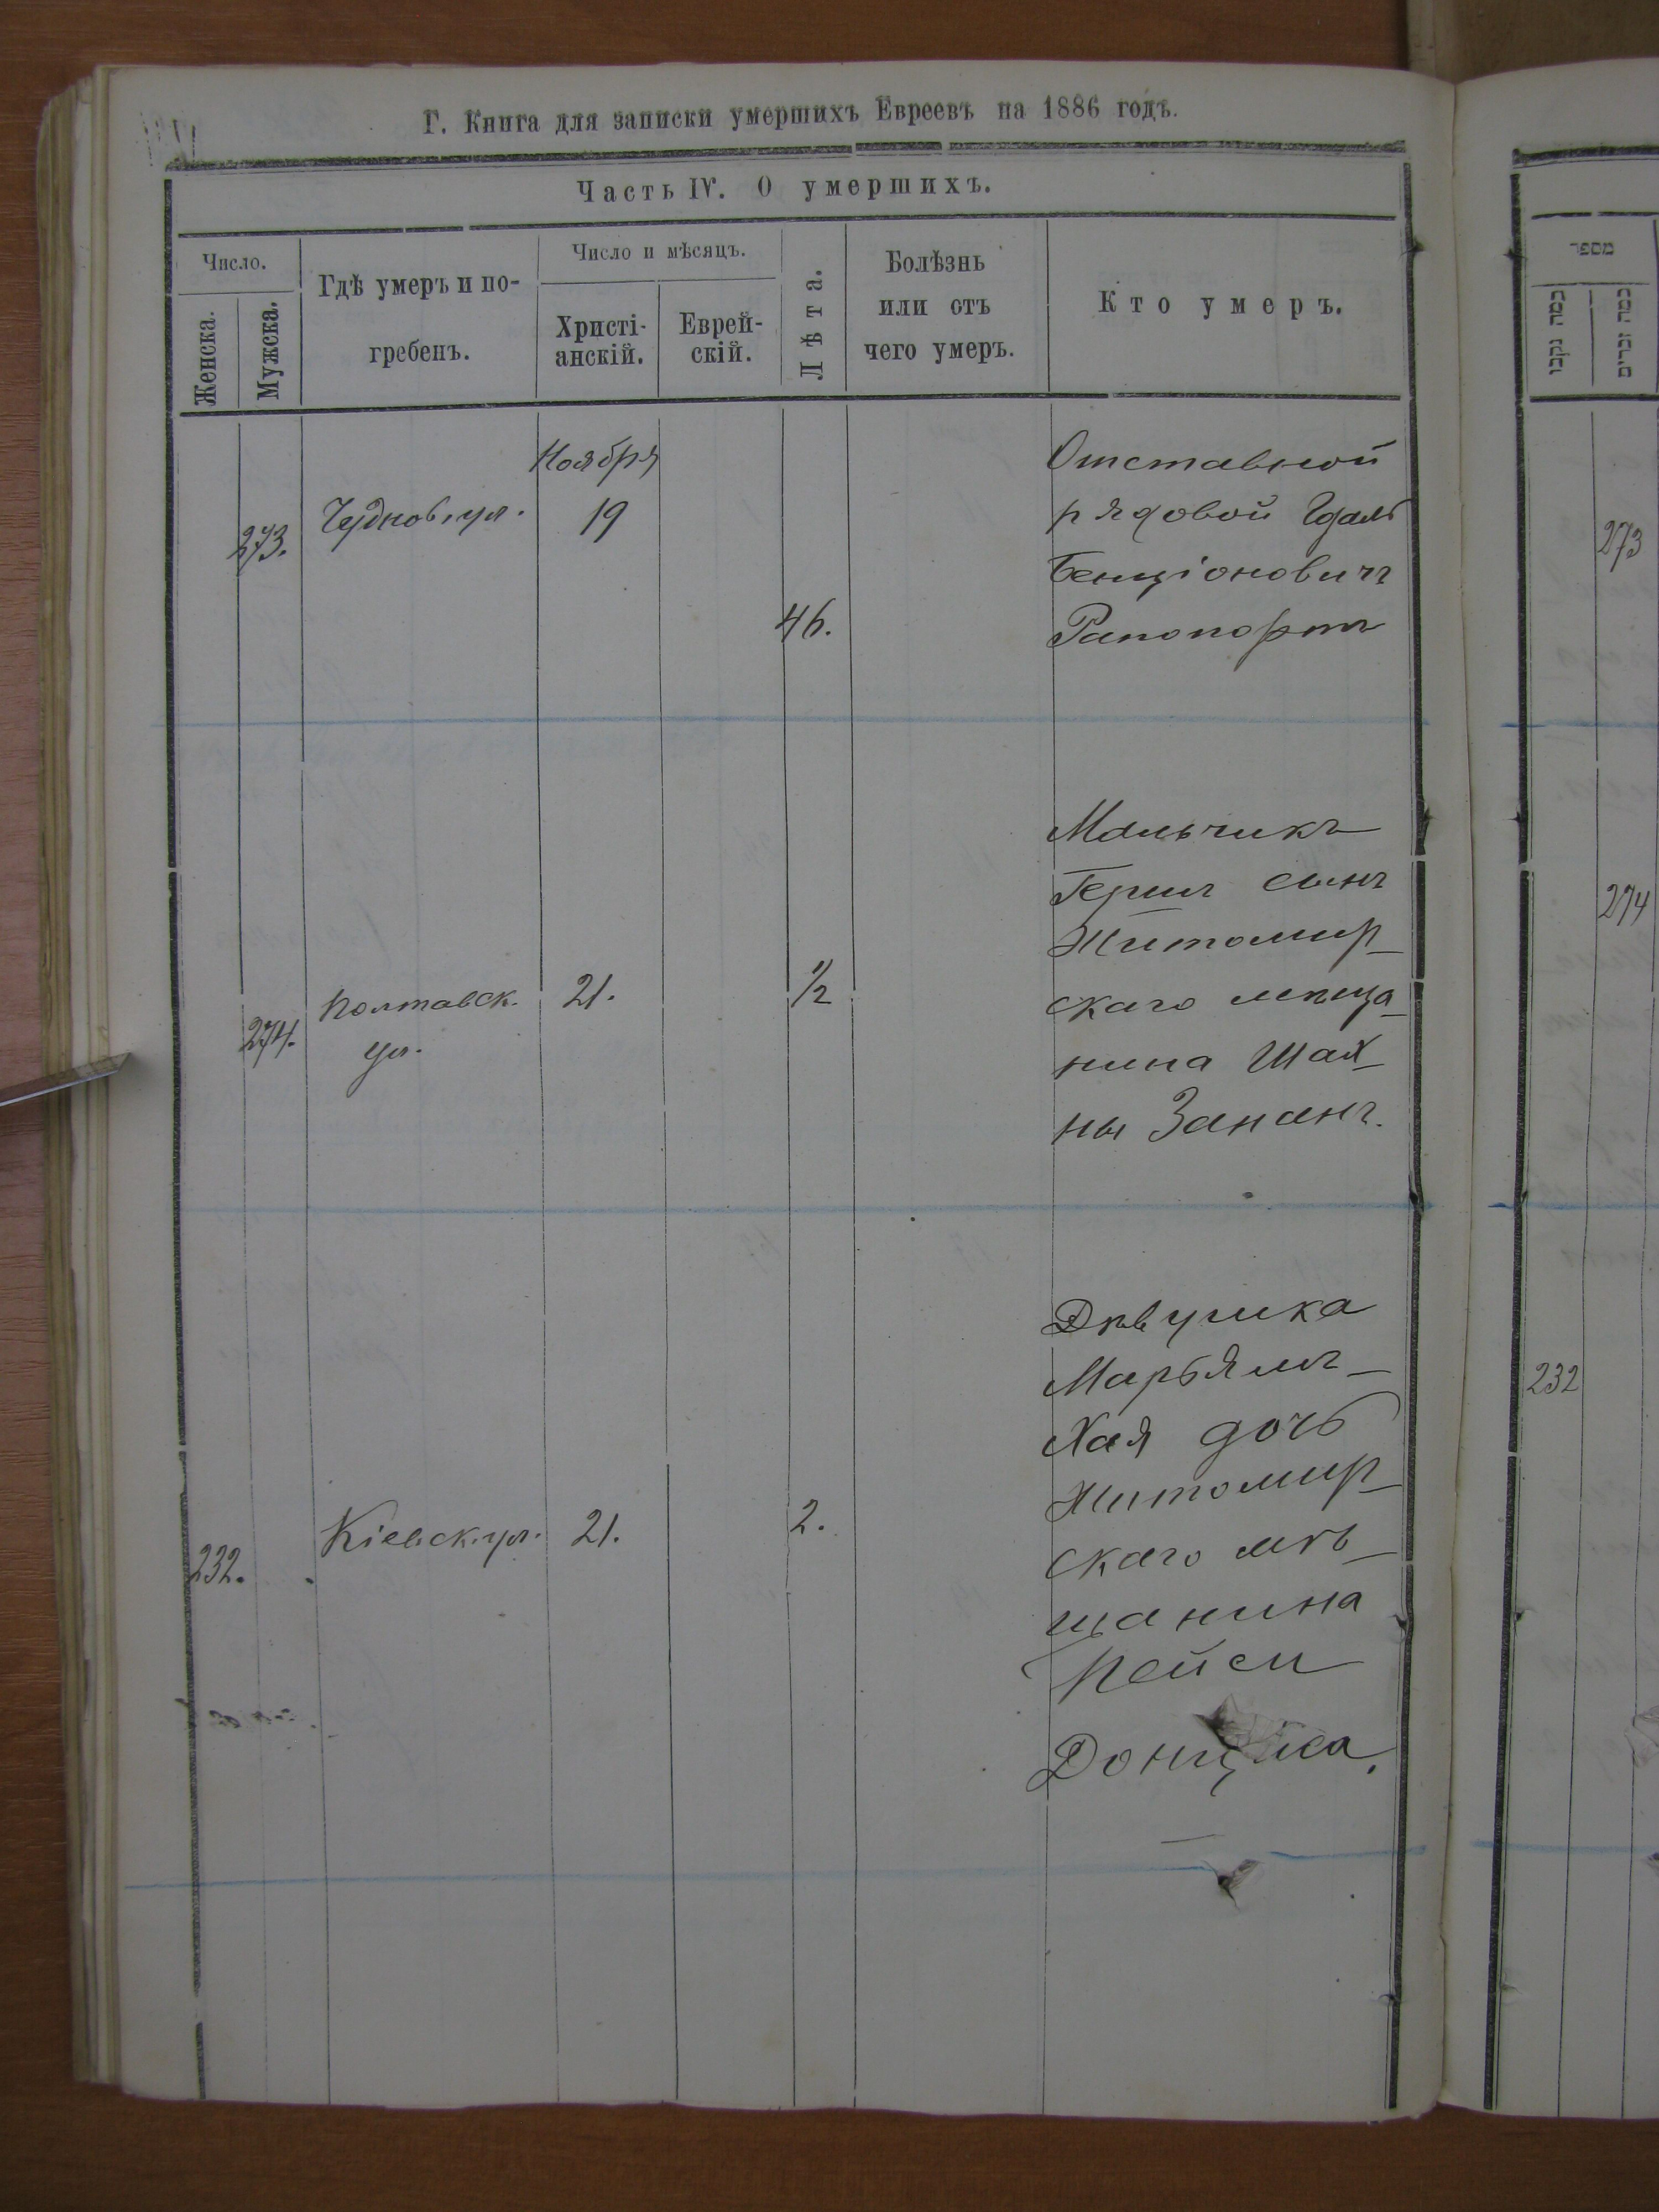 Г. Книга для записки умершихъ Евреевъ на 1886 годъ.
Часть IV. О умершихъ.
Число.
Женска.
Мужска.
Гдѣ умеръ и по-
гребенъ.
Число и мѣсяцъ.
Христі-
анскій.
Еврей-
скій.
Лѣта.
Болѣзнь
или отъ
чего умеръ.
Кто умеръ.
273.
Чуднов. ул.
Ноября
19
46.
Отставной
рядовой Гдаль
Бенціоновичъ
Рапопортъ
274.
Полтавск.
ул.
21.
1/2
Мальчикъ
Гершъ сынъ
Житомир-
скаго мѣща-
нина Шах-
ны Зананъ.
232.
Кіевск. ул.
21.
2.
Дѣвушка
Марьямъ-
Хая дочь
Житомир-
скаго мѣ-
щанина
Пейси
Донцика.
מספר
כמה נקבות
כמה זכרים
273
274
232